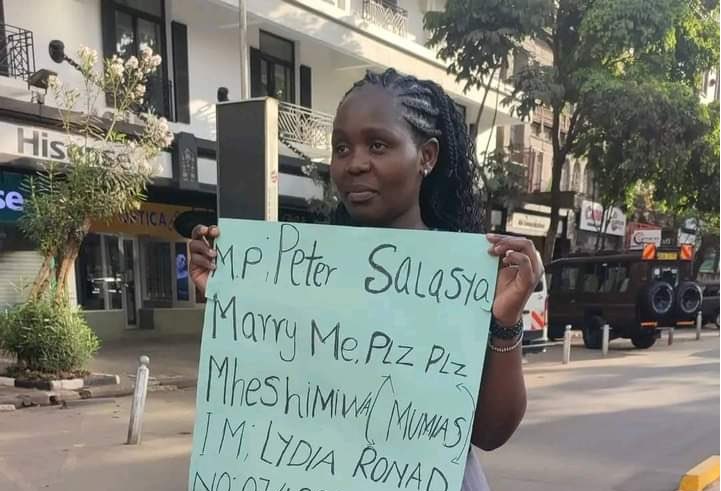 Hisense
se
M.P; Peter Salasya
Marry Me, PLZ PLZ
Mheshimiwa (MUMIAS)
I M; LYDIA RONAD